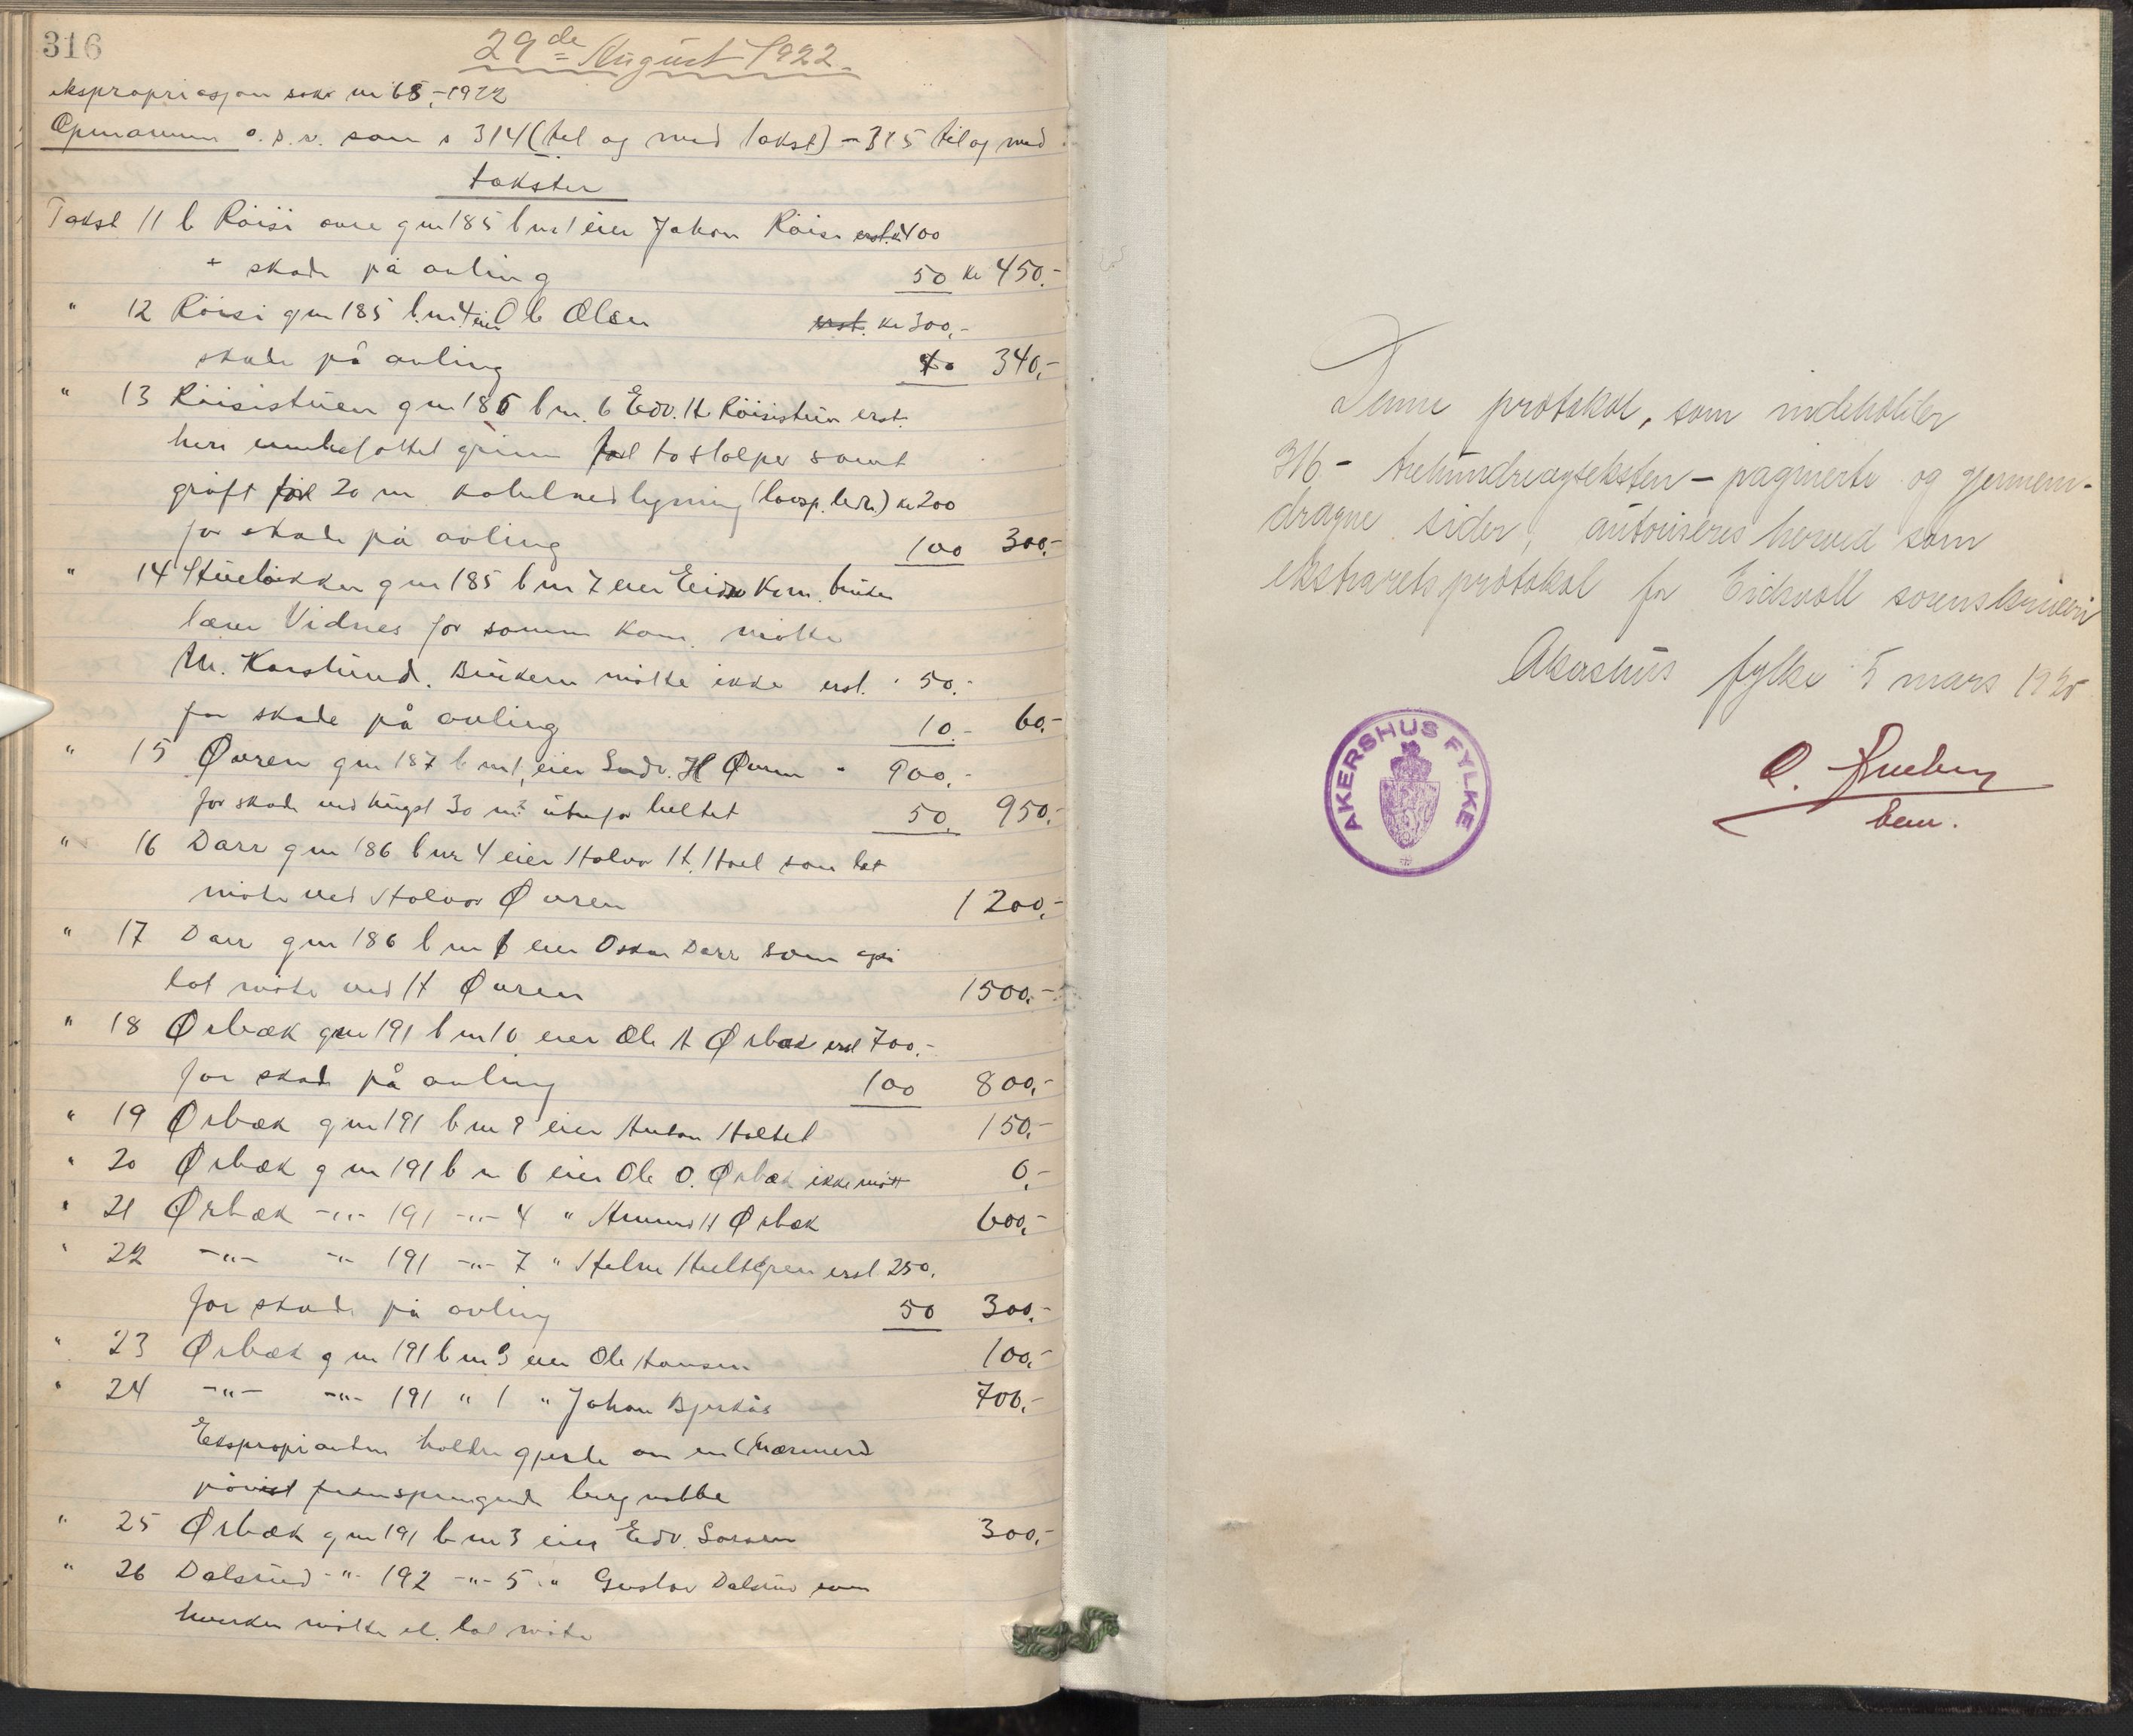 316
29de August 1922.
ekspropriasjon sak nr 68,-1922
Opmannen o.s.v. som s 314 (til og med takst) - 315 til og med
takster
Takst 11 b Röisi øvre gnr 185 bnr 1 eier Johan Röisi erst. kr 400
+ skade på avling 50 kr 450.-
" 12 Röisi gnr 185 bnr 4 eier O b Olsen erst. kr 300,-
skade på avling 40 340,-
" 13 Röisistuen gnr 185 bnr. 6 Edv. H Röisistuen erst.
heri innbefattet grinn to stolper samt
gröft 20 m kabelnedlegning (lavsp. ledn.) kr 200
for skade på avling 100 300.-
" 14 Stuelökken gnr 185 bnr 7 eier Eidsv Kom. bruker
lærer Vidnes for samme Kom. mötte
M. Karslund. Brukeren mötte ikke erst. " 50.-
for skade på avling 10.- 60.-
" 15 Øvren gnr 187 bnr 1, eier Gudv. H Øvren " 900,-
for skade ved hugst 30 m² utenfor beltet 50. 950.-
" 16 Darr gnr 186 bnr 4 eier Halvor H. Hoel som lot
möte ved Halvor Øvren 1200,-
" 17 Darr gnr 186 bnr 6 eier Oskar Darr som også
lot möte ved H Øvren 1500.-
" 18 Ørbæk gnr 191 bnr 10 eier Ole A Ørbæk erst 700.-
for skade på avling 100 800,-
" 19 Ørbæk gnr 191 bnr 9 eier Anton Holtet 150.-
" 20 Ørbæk gnr 191 bnr 6 eier Ole O. Ørbæk ikke mött 0,-
" 21 Ørbæk -"- 191 -"- 4 " Amund H Ørbæk 600,-
" 22 -"- -"- 191 -"- 7 " Halvor Hultgren erst 250.
for skade på avling 50 300.-
" 23 Ørbæk gnr 191 bnr 9 eier Ole Hansen 100,-
" 24 -"- -"- 191 " 1 " Johan Bjerkås 700.-
Eksproprianten holder gjerde om en (nærmere
påvist fremspringende bergnabbe
" 25 Ørbæk gnr 191 bnr 3 eier Edv. Larsen 300,-
" 26 Dalsrud -"- 192 -"- 5 " Gustav Dalsrud som
hverken mötte el. lot möte
Denne protokol, som indeholder
316 - trehundreogseksten - paginerte og gjennem-
dragne sider, autoriseres herved som
ekstraretsprotokol for Eidsvoll sorenskriveri
Akershus fylke 5 mars 1920
AKERSHUS FYLKE